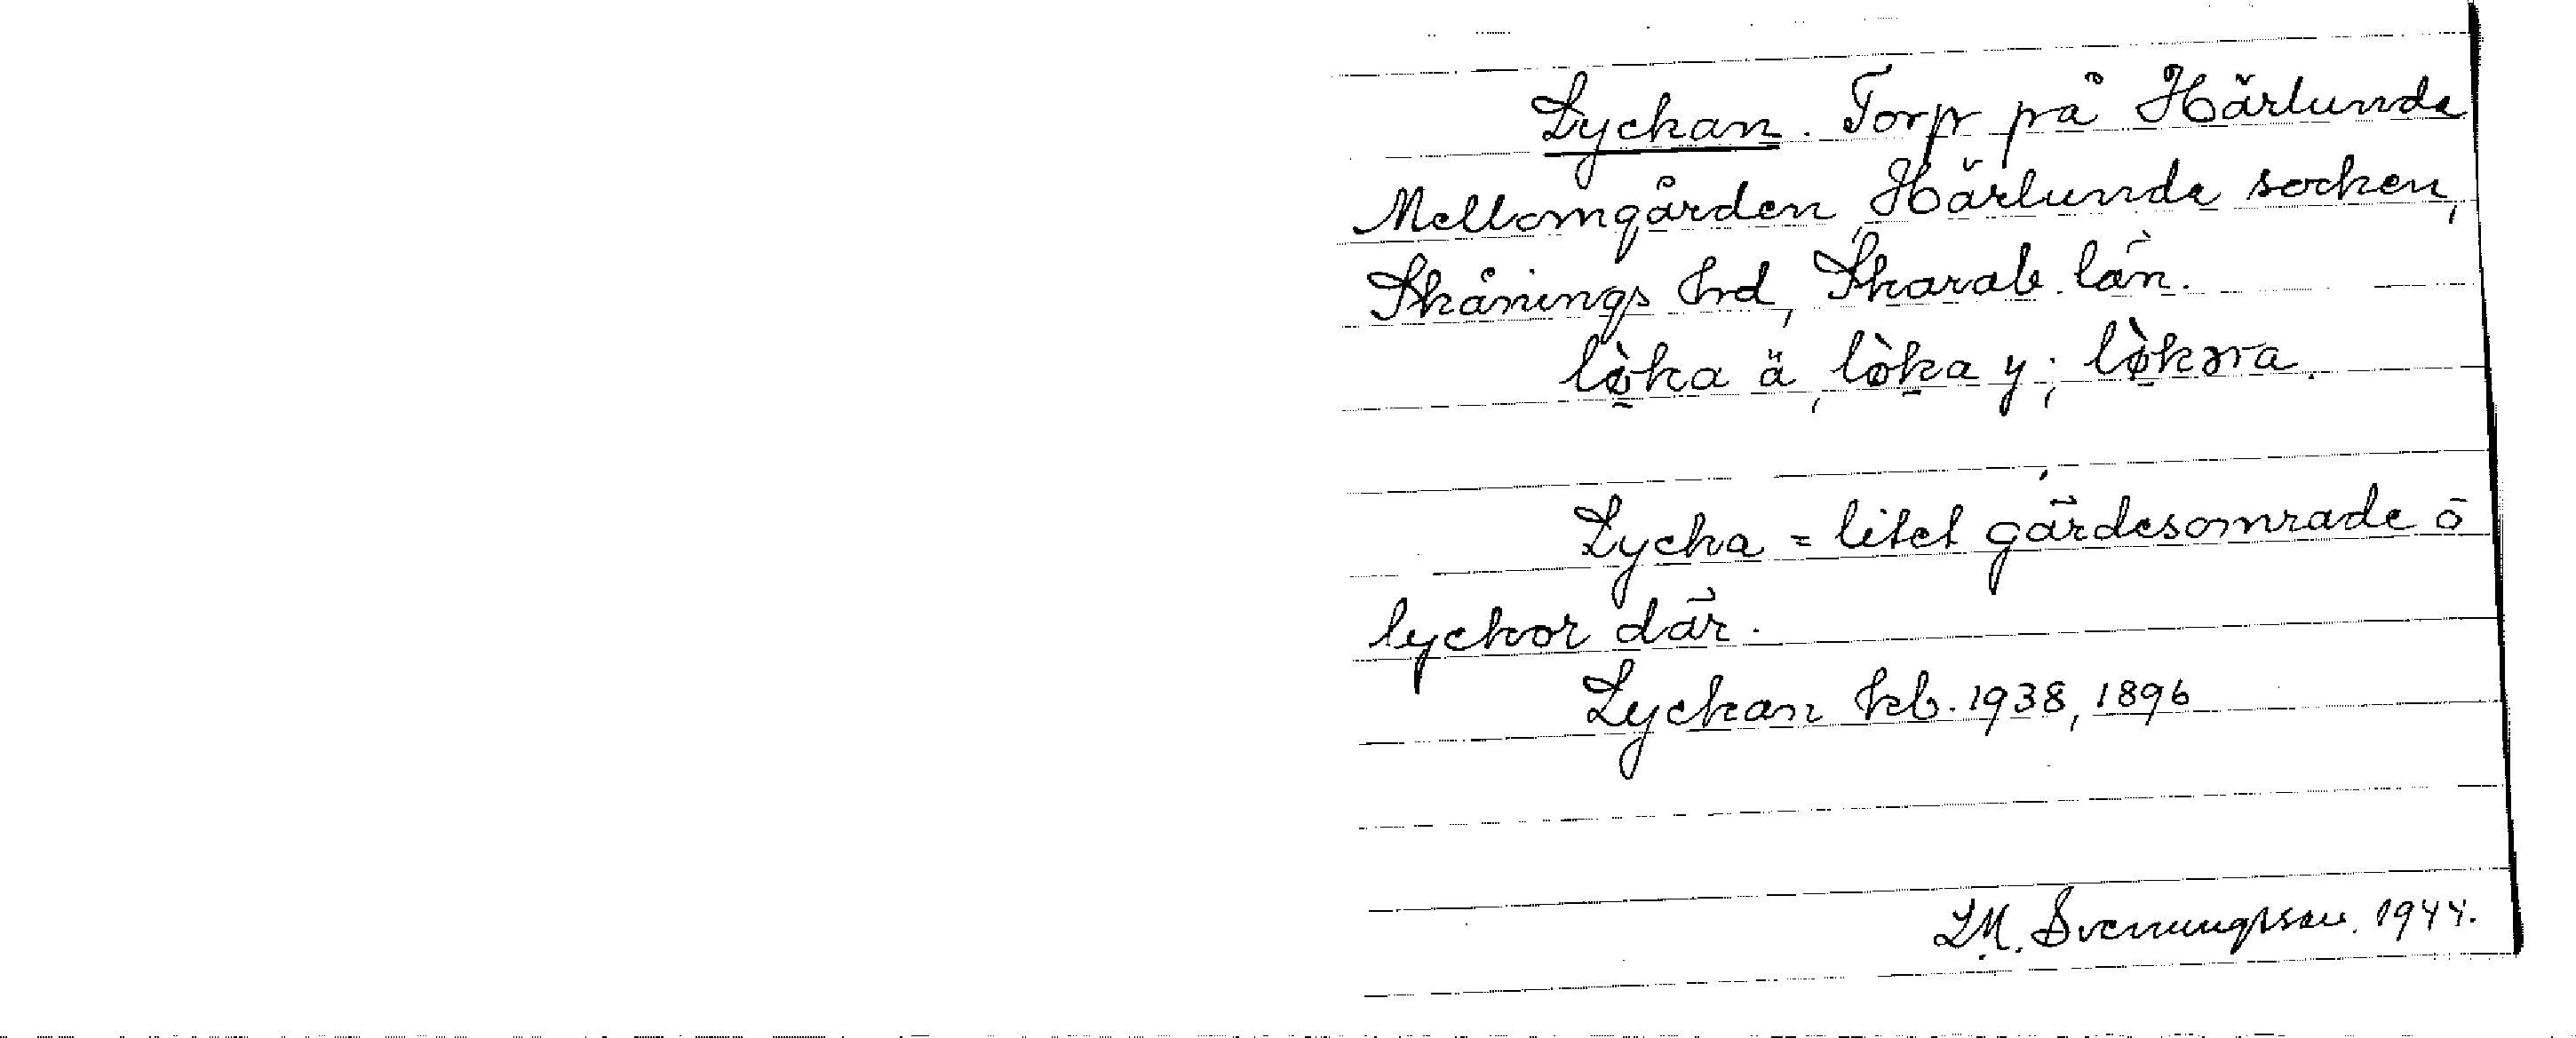 Lyckan. Torp på Härlunda
Mellomgården, Härlunda socken,
Skånings hrd, Skarab. län.
lø̀ka ä, lø̀ka y; lø̀kɔra.
Lycka = litet gärdesområde o
lyckor där.
Lyckan kb. 1938, 1896
LM. Svenungsson. 1944.